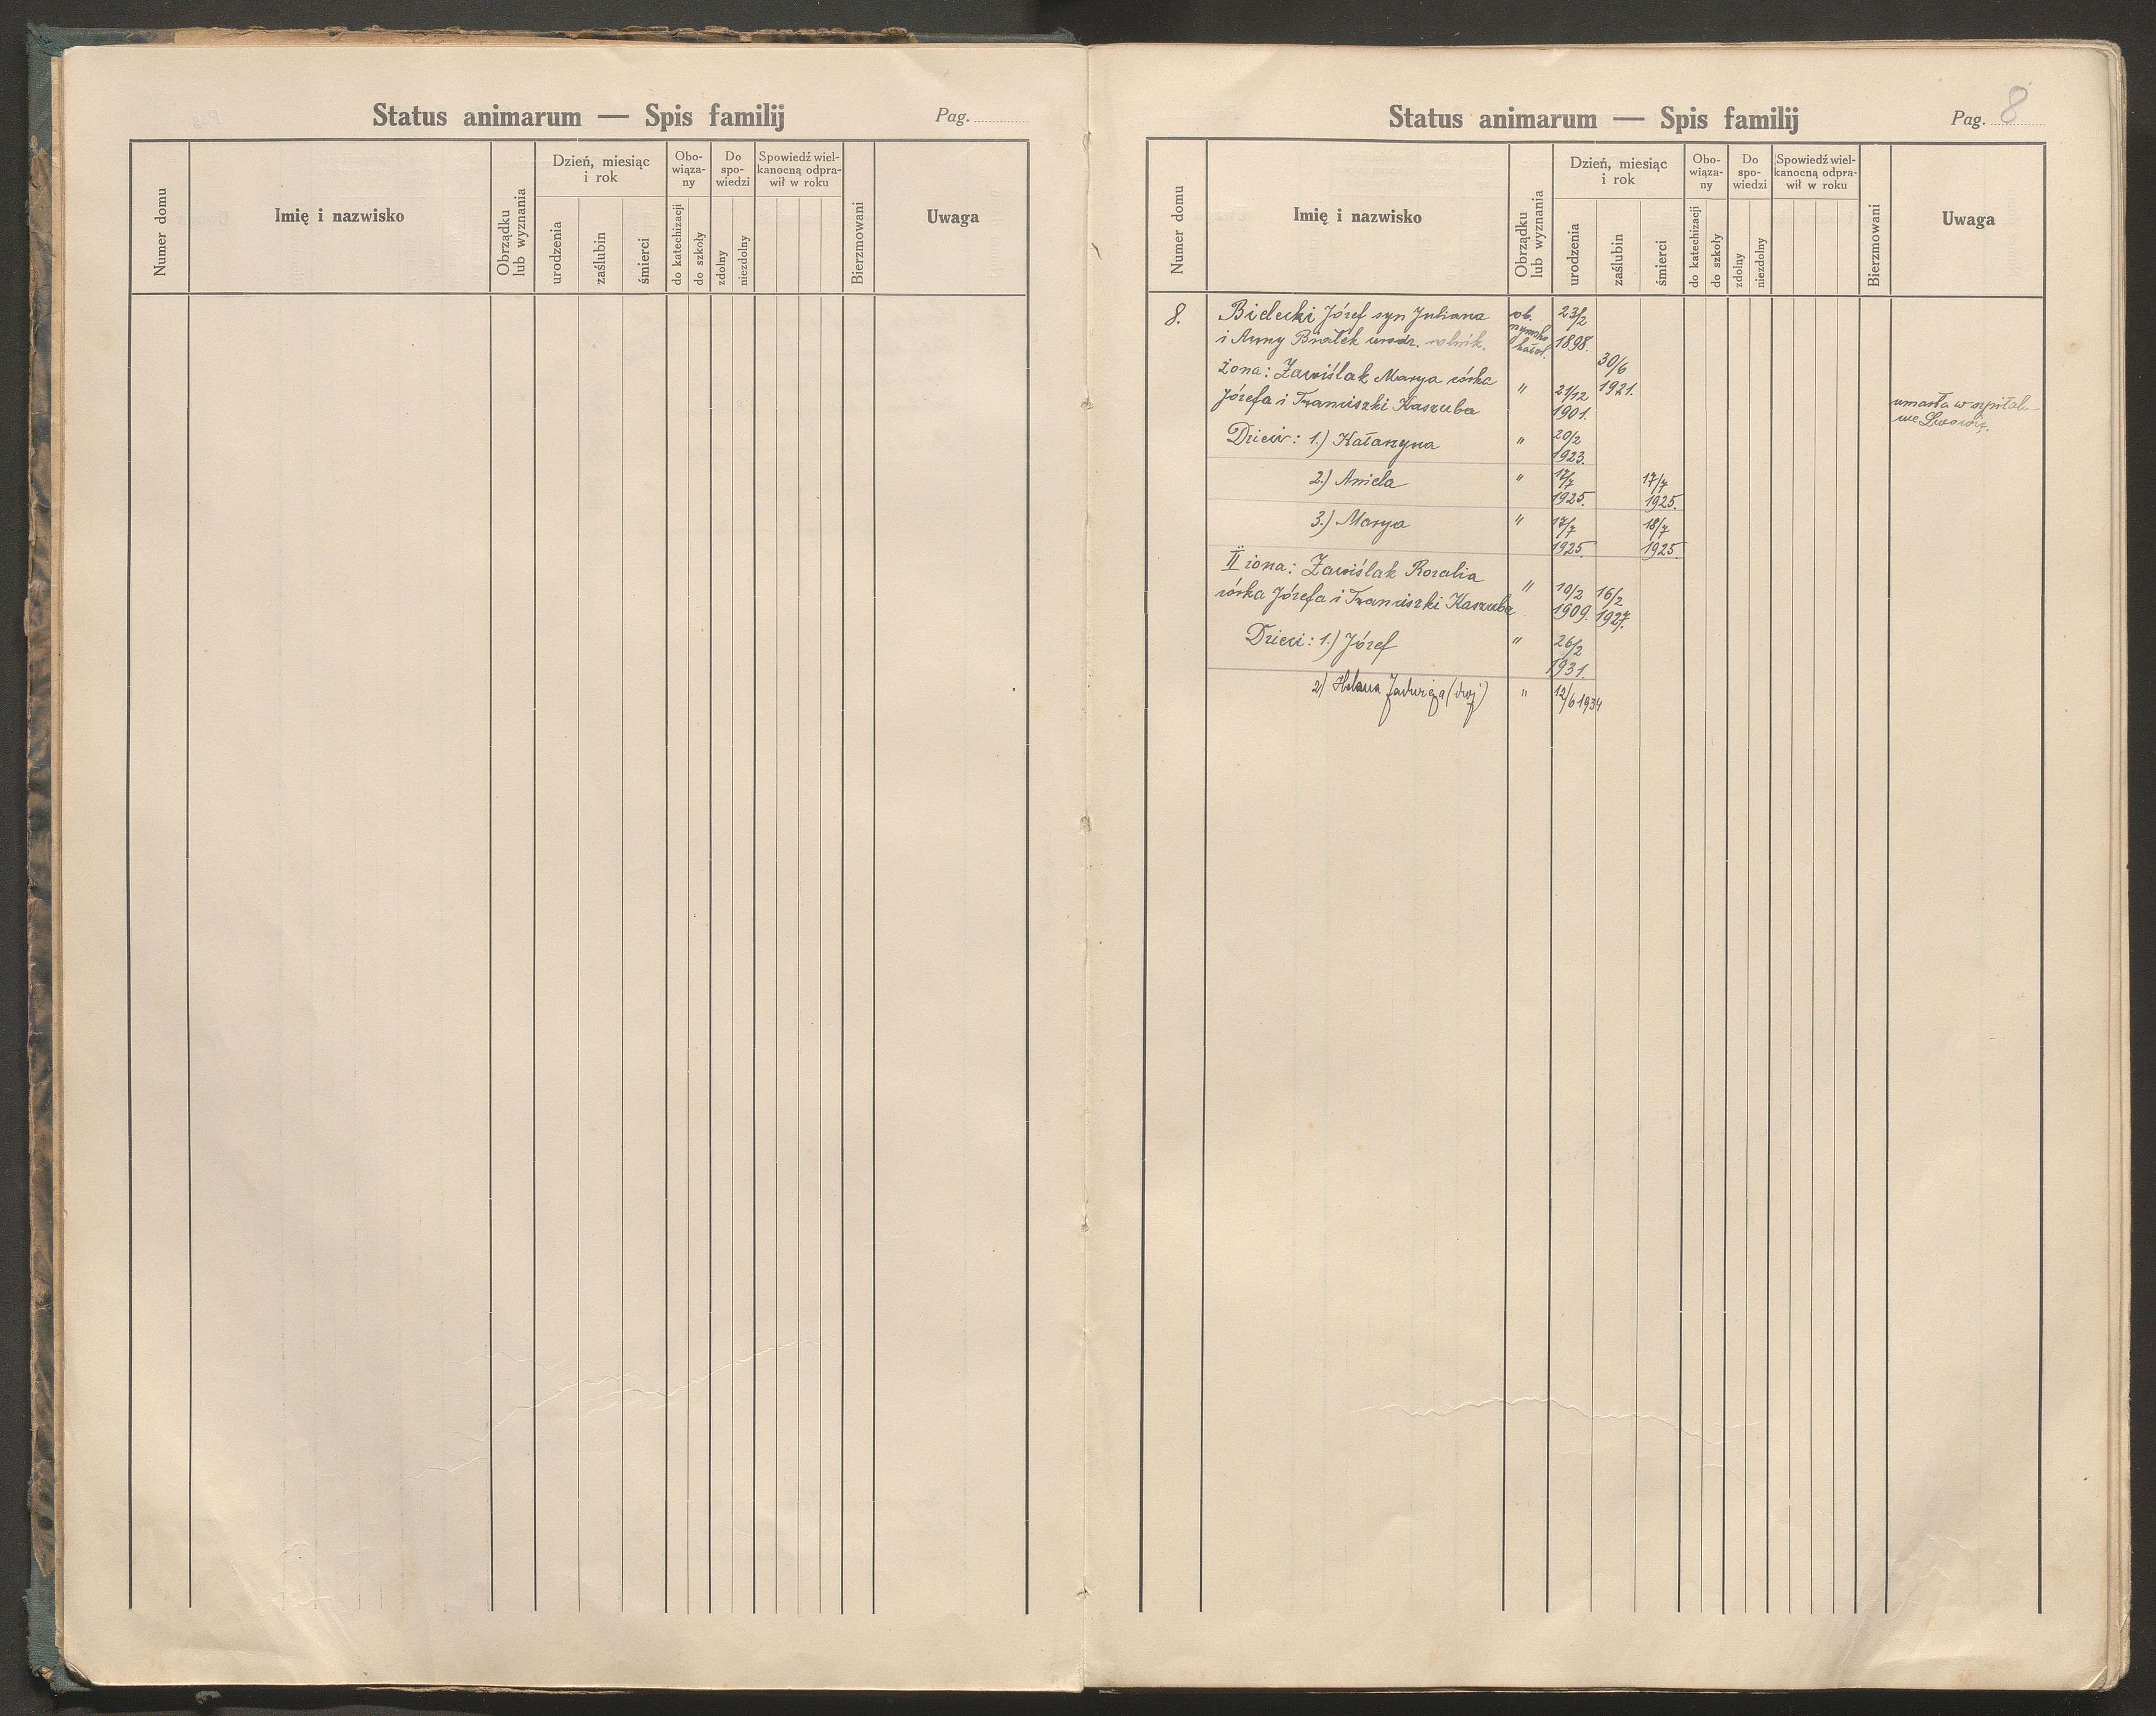 Status animarum — Spis familij
Pag.
Numer domu
Imię i nazwisko
Obrządku lub wyznania
Dzień, miesiąc i rok
urodzenia
zaślubin
śmierci
Obo-
wiąza-
ny
do katechizacji
do szkoły
Do
spo-
wiedzi
zdolny
niezdolny
Spowiedź wiel-
kanocną odpra-
wił w roku
Bierzmowani
Uwaga
Status animarum — Spis familij
Pag. 8
Numer domu
Imię i nazwisko
Obrządku lub wyznania
Dzień, miesiąc i rok
urodzenia
zaślubin
śmierci
Obo-
wiąza-
ny
do katechizacji
do szkoły
Do
spo-
wiedzi
zdolny
niezdolny
Spowiedź wiel-
kanocną odpra-
wił w roku
Bierzmowani
Uwaga
8. Bielecki Józef syn Juliana ob. 23/2
i Anny Białek urodz. rolnik. rzymsko katol. 1898.
żona: Zawiślak Marya córka " 21/12 30/6
Józefa i Franciszki Kaszuba 1901. 1921. umarła w szpitalu
we Lwowie.
Dzieci: 1.) Katarzyna " 20/2 1923.
2.) Aniela " 17/7 1925. 17/7 1925.
3.) Marya " 17/7 1925. 18/7 1925.
II żona: Zawiślak Rozalia
córka Józefa i Franciszki Kaszuba " 19/2 1909. 16/2 1927.
Dzieci: 1.) Józef " 26/2 1931.
2) Helena Jadwiga (dwoj) " 12/6 1934